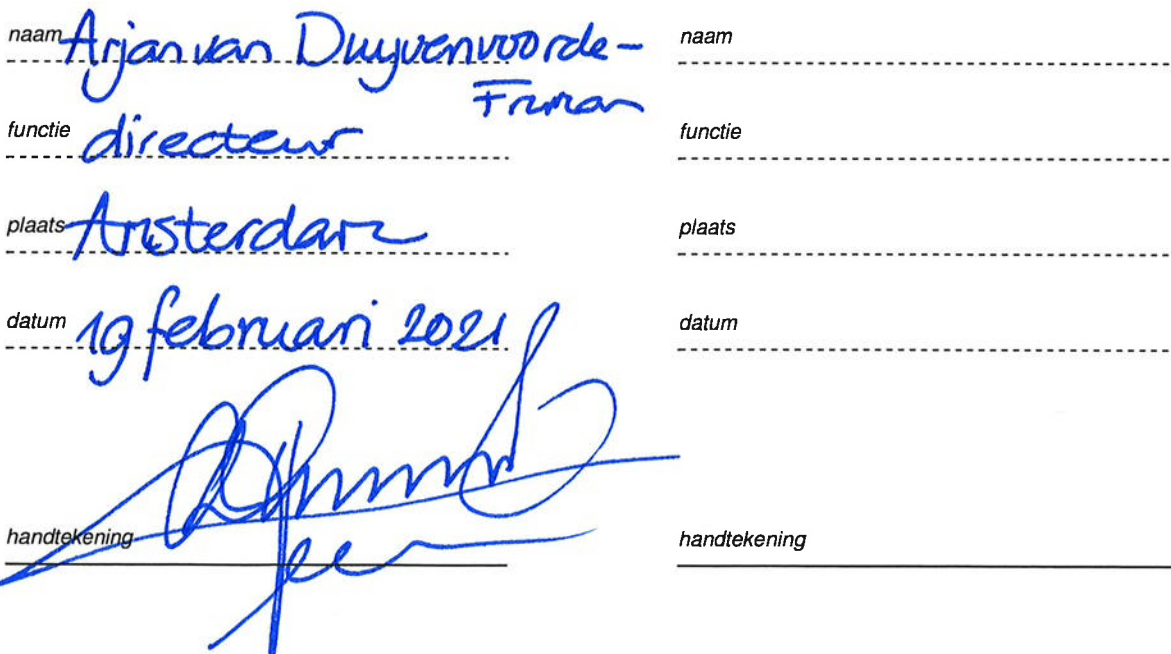 naam Arjan van Duyvenvoorde-
Fruman
functie directeur
plaats Amsterdam
datum 19 februari 2021
handtekening
naam
functie
plaats
datum
handtekening